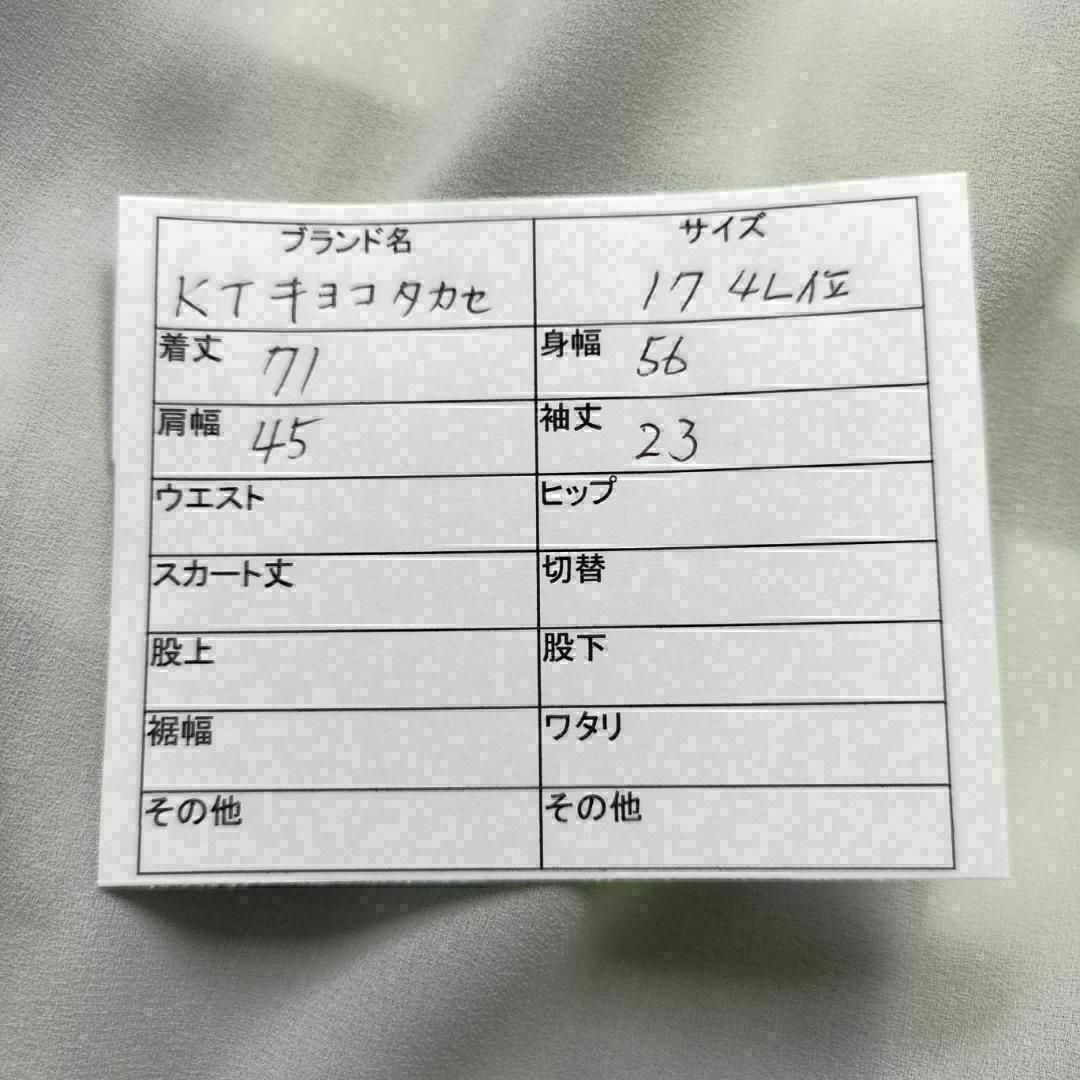 ブランド名 サイズ
KT キヨコ タカセ 17 4L位
着丈 71 身幅 56
肩幅 45 袖丈 23
ウエスト ヒップ
スカート丈 切替
股上 股下
裾幅 ワタリ
その他 その他